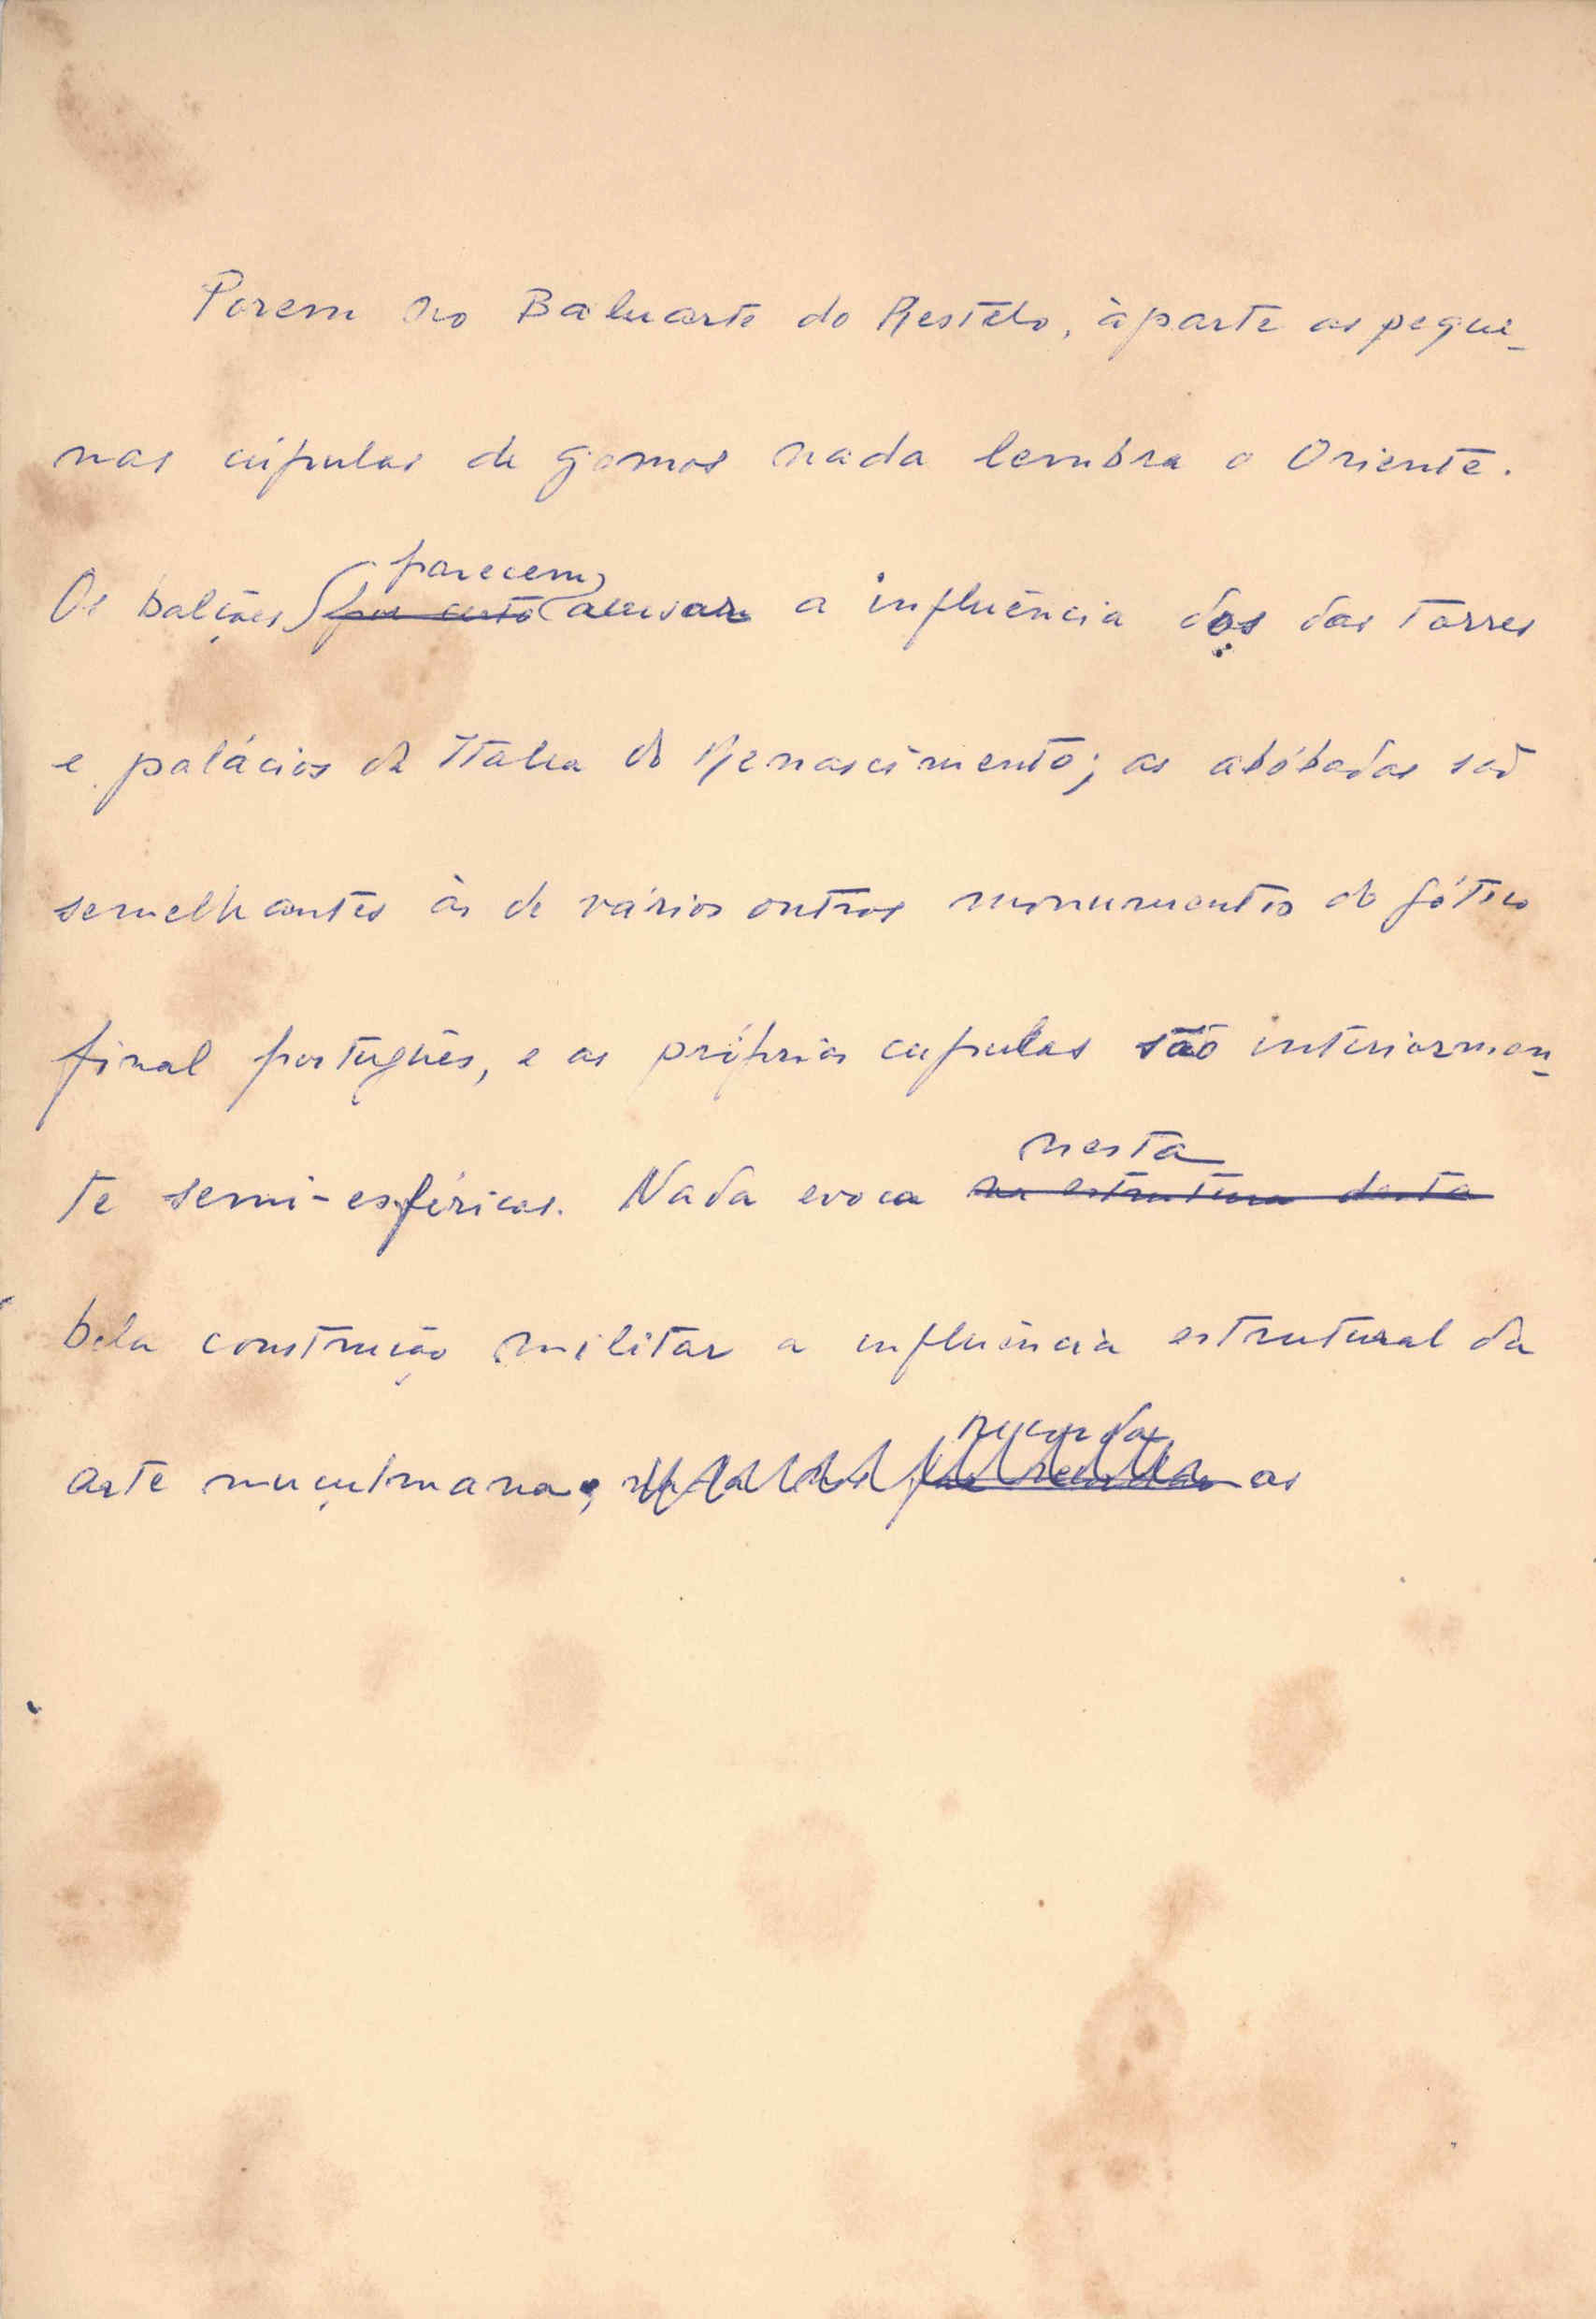 Porem no Baluarte do Restêlo, àparte as peque-
nas cúpulas de gomos nada lembra o Oriente.
parecem
Os balcões por certo acusar a influência dos das torres
e palácios da Italia do Renascimento; as abóbadas são
semelhantes às de vários outros monumentos do gótico
final português, e as próprias cupulas são interiormen-
nesta
te semi-esféricas. Nada evoca na estrutura desta
bela construção militar a influência estrutural da
recorda
arte muçulmana, as